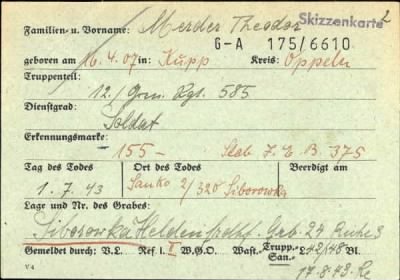 Familien- u. Vorname: Merder Theodor Skizzenkarte 2
G-A 175/6610
geboren am 16.4.07 in: Kupp Kreis: Oppeln
Truppenteil:
12./Gren. Rgt. 585
Dienstgrad:
Soldat
Erkennungsmarke:
155 - Stab J.E.B. 375
Tag des Todes Ort des Todes Beerdigt am
1.7.43 Sanko 2/320 Siborowka
Lage und Nr. des Grabes:
Siborowka Heldenfrdhf. Grb. 24 Reihe 3
Gemeldet durch: V.L. Ref. I W.G.O. Wast.- Trupp. San. L 42/48 Bl.
V 4 17.8.43.